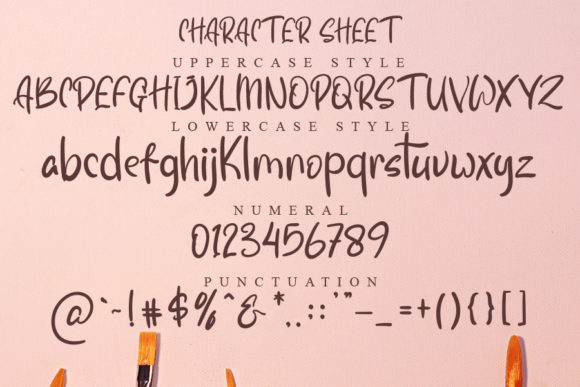 CHARACTER SHEET
UPPERCASE STYLE
ABCDEFGHIJKLMNOPQRSTUVWXYZ
LOWERCASE STYLE
abcdefghijklmnopqrstuvwxyz
NUMERAL
0123456789
PUNCTUATION
@`~!#$%^&*..::'"–_=+(){}[]